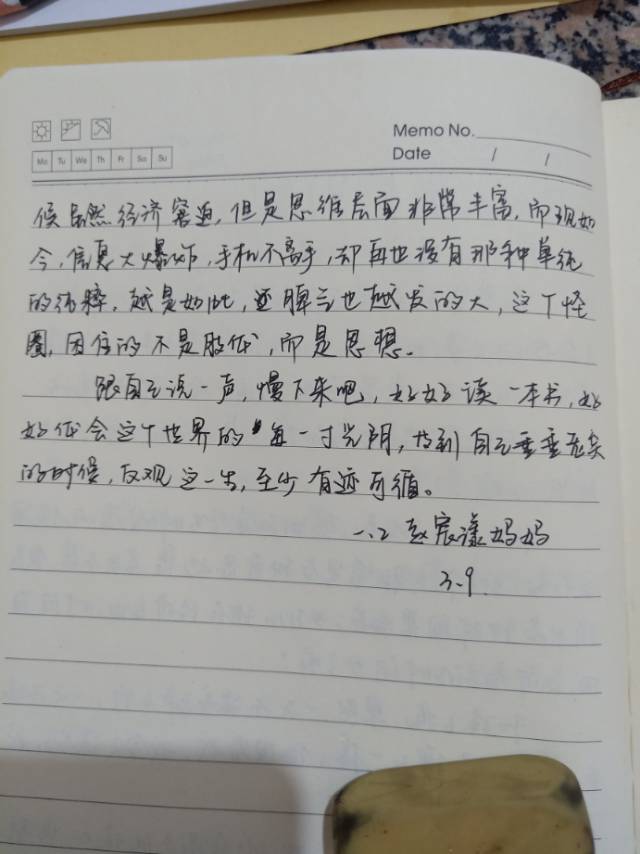 Memo No.
Date / /
Mo Tu We Th Fr Sa Su
候虽然经济窘迫，但是思维层面非常丰富，而现如
今，信息大爆炸，手机不离手，却再也没有那种单纯
的纯粹，越是如此，这脾气也越发的大，这个怪
圈，困住的不是肢体，而是思想。
跟自己说一声，慢下来吧，好好读一本书，好
好体会这个世界的每一寸光阴，待到自己垂垂老矣
的时候，反观这一生，至少有迹可循。
一.2 赵宸漾妈妈
3.9.